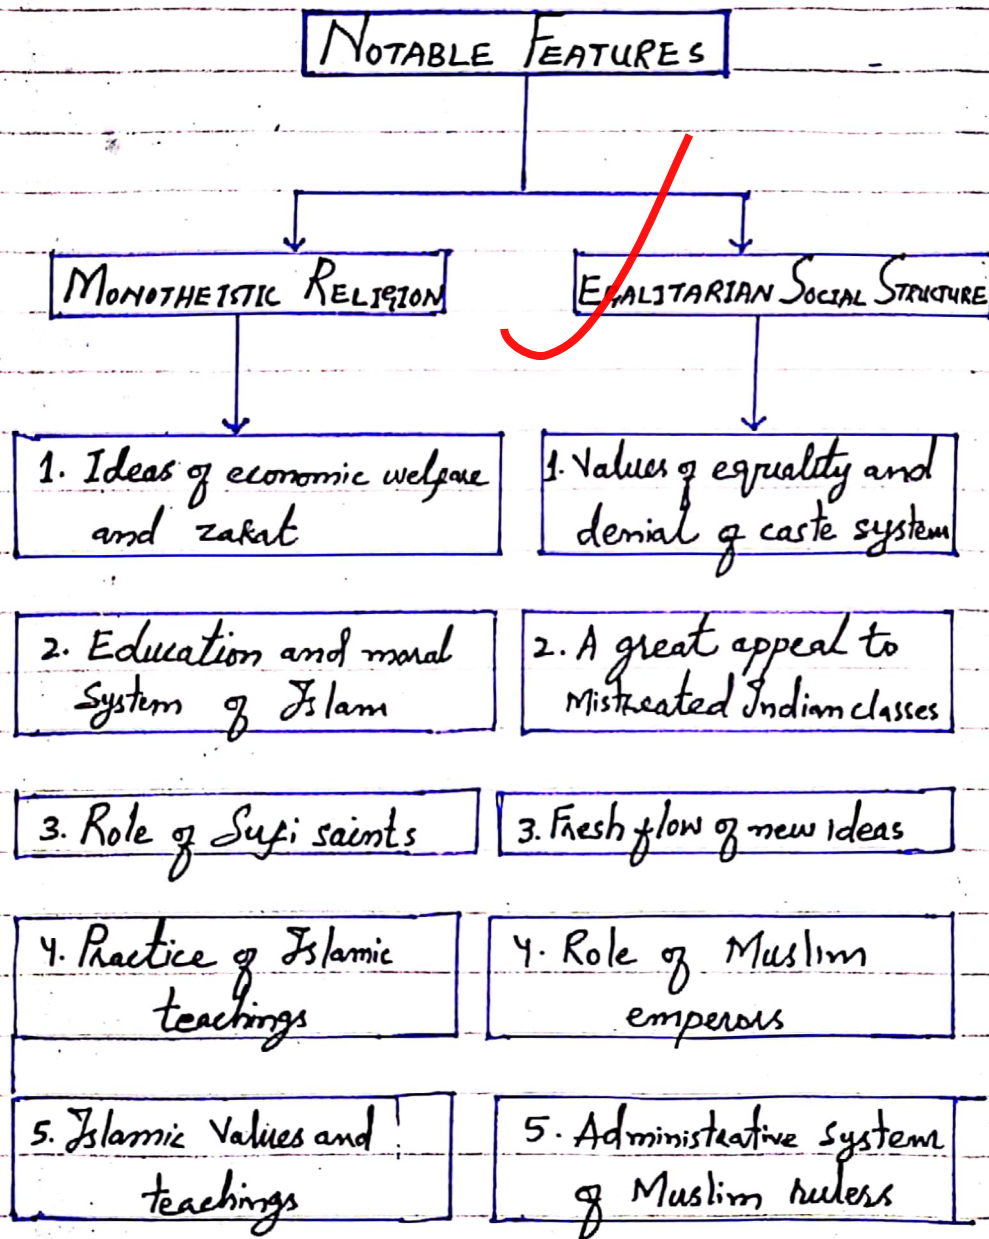 NOTABLE FEATURES
MONOTHEISTIC RELIGION
EGALITARIAN SOCIAL STRUCTURE
1. Ideas of economic welfare
and zakat
2. Education and moral
System of Islam
3. Role of Sufi saints
4. Practice of Islamic
teachings
5. Islamic Values and
teachings
1. Values of equality and
denial of caste system
2. A great appeal to
Mistreated Indian classes
3. Fresh flow of new ideas
4. Role of Muslim
emperors
5. Administrative system
of Muslim rulers